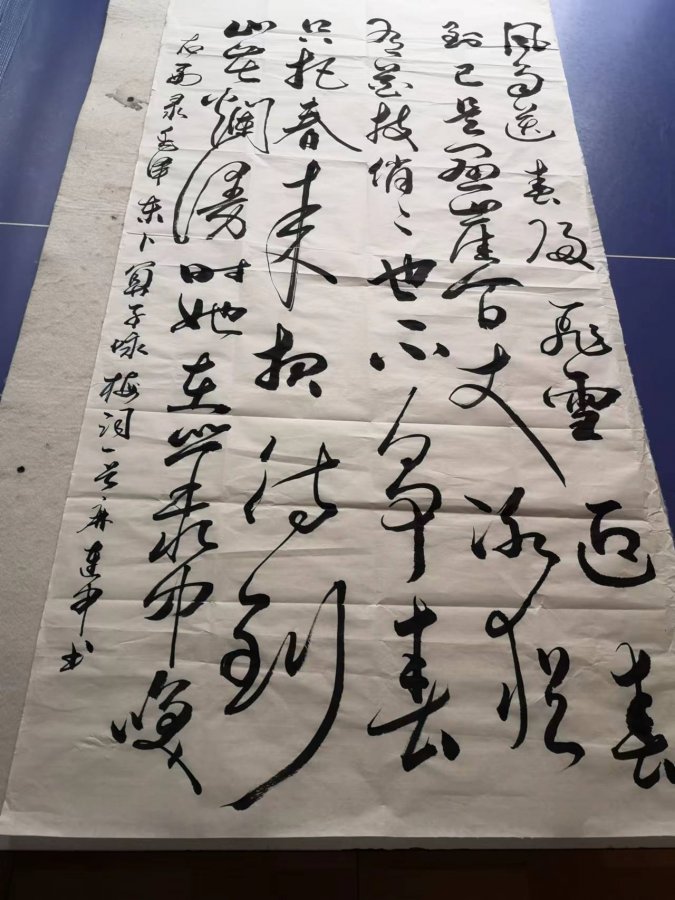 风雨送春归飞雪迎春
到已是悬崖百丈冰犹
有花枝俏〻也不争春
只把春来报待到
山花爛漫时她在丛中笑
右录毛泽东卜算子咏梅词一首麻建中书